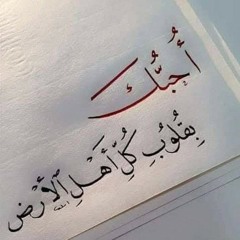 أُحبُّك
بِقلُوبِ كُلِّ أَهْلِ الأَرْض